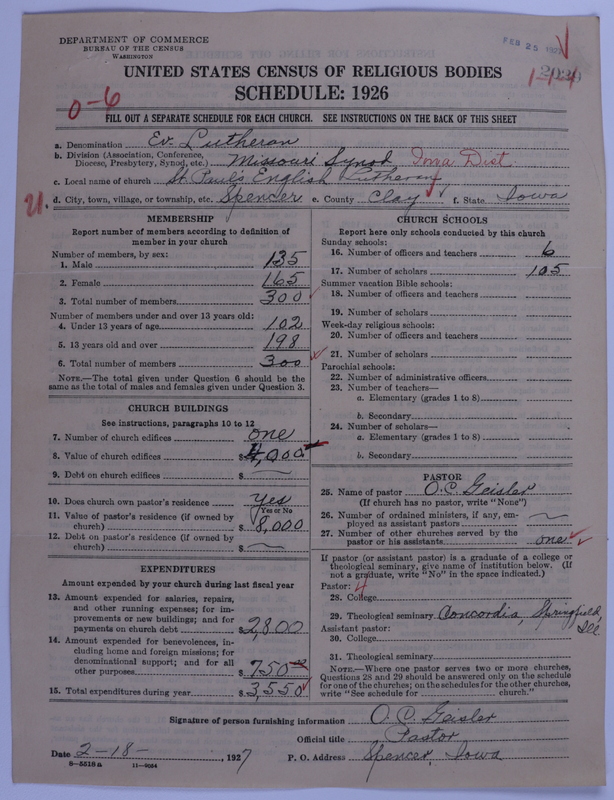 DEPARTMENT OF COMMERCE
BUREAU OF THE CENSUS
WASHINGTON
FEB 25 192
UNITED STATES CENSUS OF RELIGIOUS BODIES
SCHEDULE: 1926
0-6
FILL OUT A SEPARATE SCHEDULE FOR EACH CHURCH. SEE INSTRUCTIONS ON THE BACK OF THIS SHEET
a. Denomination Ev. Lutheran
b. Division (Association, Conference, Diocese, Presbytery, Synod, etc.) Missouri Synod Iowa Dist
c. Local name of church St. Paul's English Lutheran
d. City, town, village, or township, etc. Spencer e. County Clay f. State Iowa
MEMBERSHIP
Report number of members according to definition of
member in your church
Number of members, by sex:
1. Male 135
2. Female 165
3. Total number of members 300
Number of members under and over 13 years old:
4. Under 13 years of age 102
5. 13 years old and over 198
6. Total number of members 300
NOTE.—The total given under Question 6 should be
same as the total of males and females given under Question 3.
CHURCH BUILDINGS
See instructions, paragraphs 10 to 12
7. Number of church edifices one
8. Value of church edifices $4,000
9. Debt on church edifices $ —
10. Does church own pastor's residence Yes
Yes or No
11. Value of pastor's residence (if owned by
church) $ 8,000
12. Debt on pastor's residence (if owned by
church) $ —
EXPENDITURES
Amount expended by your church during last fiscal year
13. Amount expended for salaries, repairs,
and other running expenses; for im-
provements or new buildings; and for
payments on church debt $2,800
14. Amount expended for benevolences, in-
cluding home and foreign missions; for
denominational support; and for all
other purposes $ 750
15. Total expenditures during year $3,550
CHURCH SCHOOLS
Report here only schools conducted by this church
Sunday schools:
16. Number of officers and teachers 6
17. Number of scholars 105
Summer vacation Bible schools:
18. Number of officers and teachers
19. Number of scholars
Week-day religious schools:
20. Number of officers and teachers
21. Number of scholars
Parochial schools:
22. Number of administrative officers
23. Number of teachers—
a. Elementary (grades 1 to 8)
b. Secondary
24. Number of scholars—
a. Elementary (grades 1 to 8)
b. Secondary
PASTOR
25. Name of pastor O.C. Geisler
(If church has no pastor, write "None")
26. Number of ordained ministers, if any, em-
ployed as assistant pastors —
27. Number of other churches served by the
pastor or his assistants one
If pastor (or assistant pastor) is a graduate of a college or
theological seminary, give name of institution below. (If
not a graduate, write "No" in the space indicated.)
Pastor: 4
28. College
29. Theological seminary Concordia, Springfield, Ill
Assistant pastor:
30. College
31. Theological seminary
NOTE.—Where one pastor serves two or more churches,
Questions 28 and 29 should be answered only on the schedule
for one of the churches; on the schedules for the other churches,
write "See schedule for church."
Signature of person furnishing information O.C. Geisler
Official title Pastor
Date 2-18-, 1927 P. O. Address Spencer, Iowa
8-5518a 11-9054